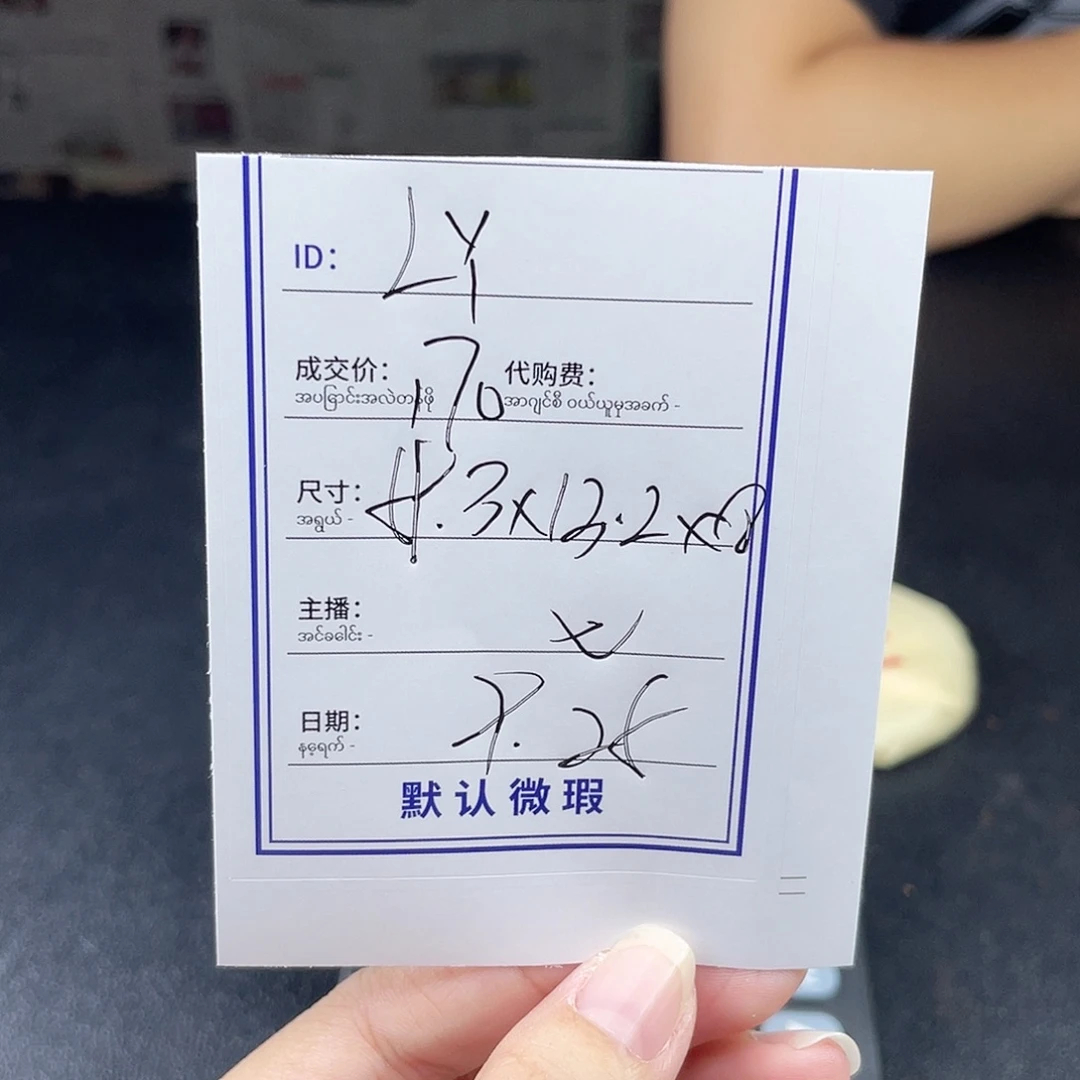 ID: LY
成交价: 170 代购费:
အပြောင်းအလဲတန်ဖိုး အာဂျင်စီ ဝယ်ယူမှုအခက် -
尺寸:
အရွယ် -
主播:
အင်ခခေါင်း -
日期:
နေ့ရက် -
默认微瑕